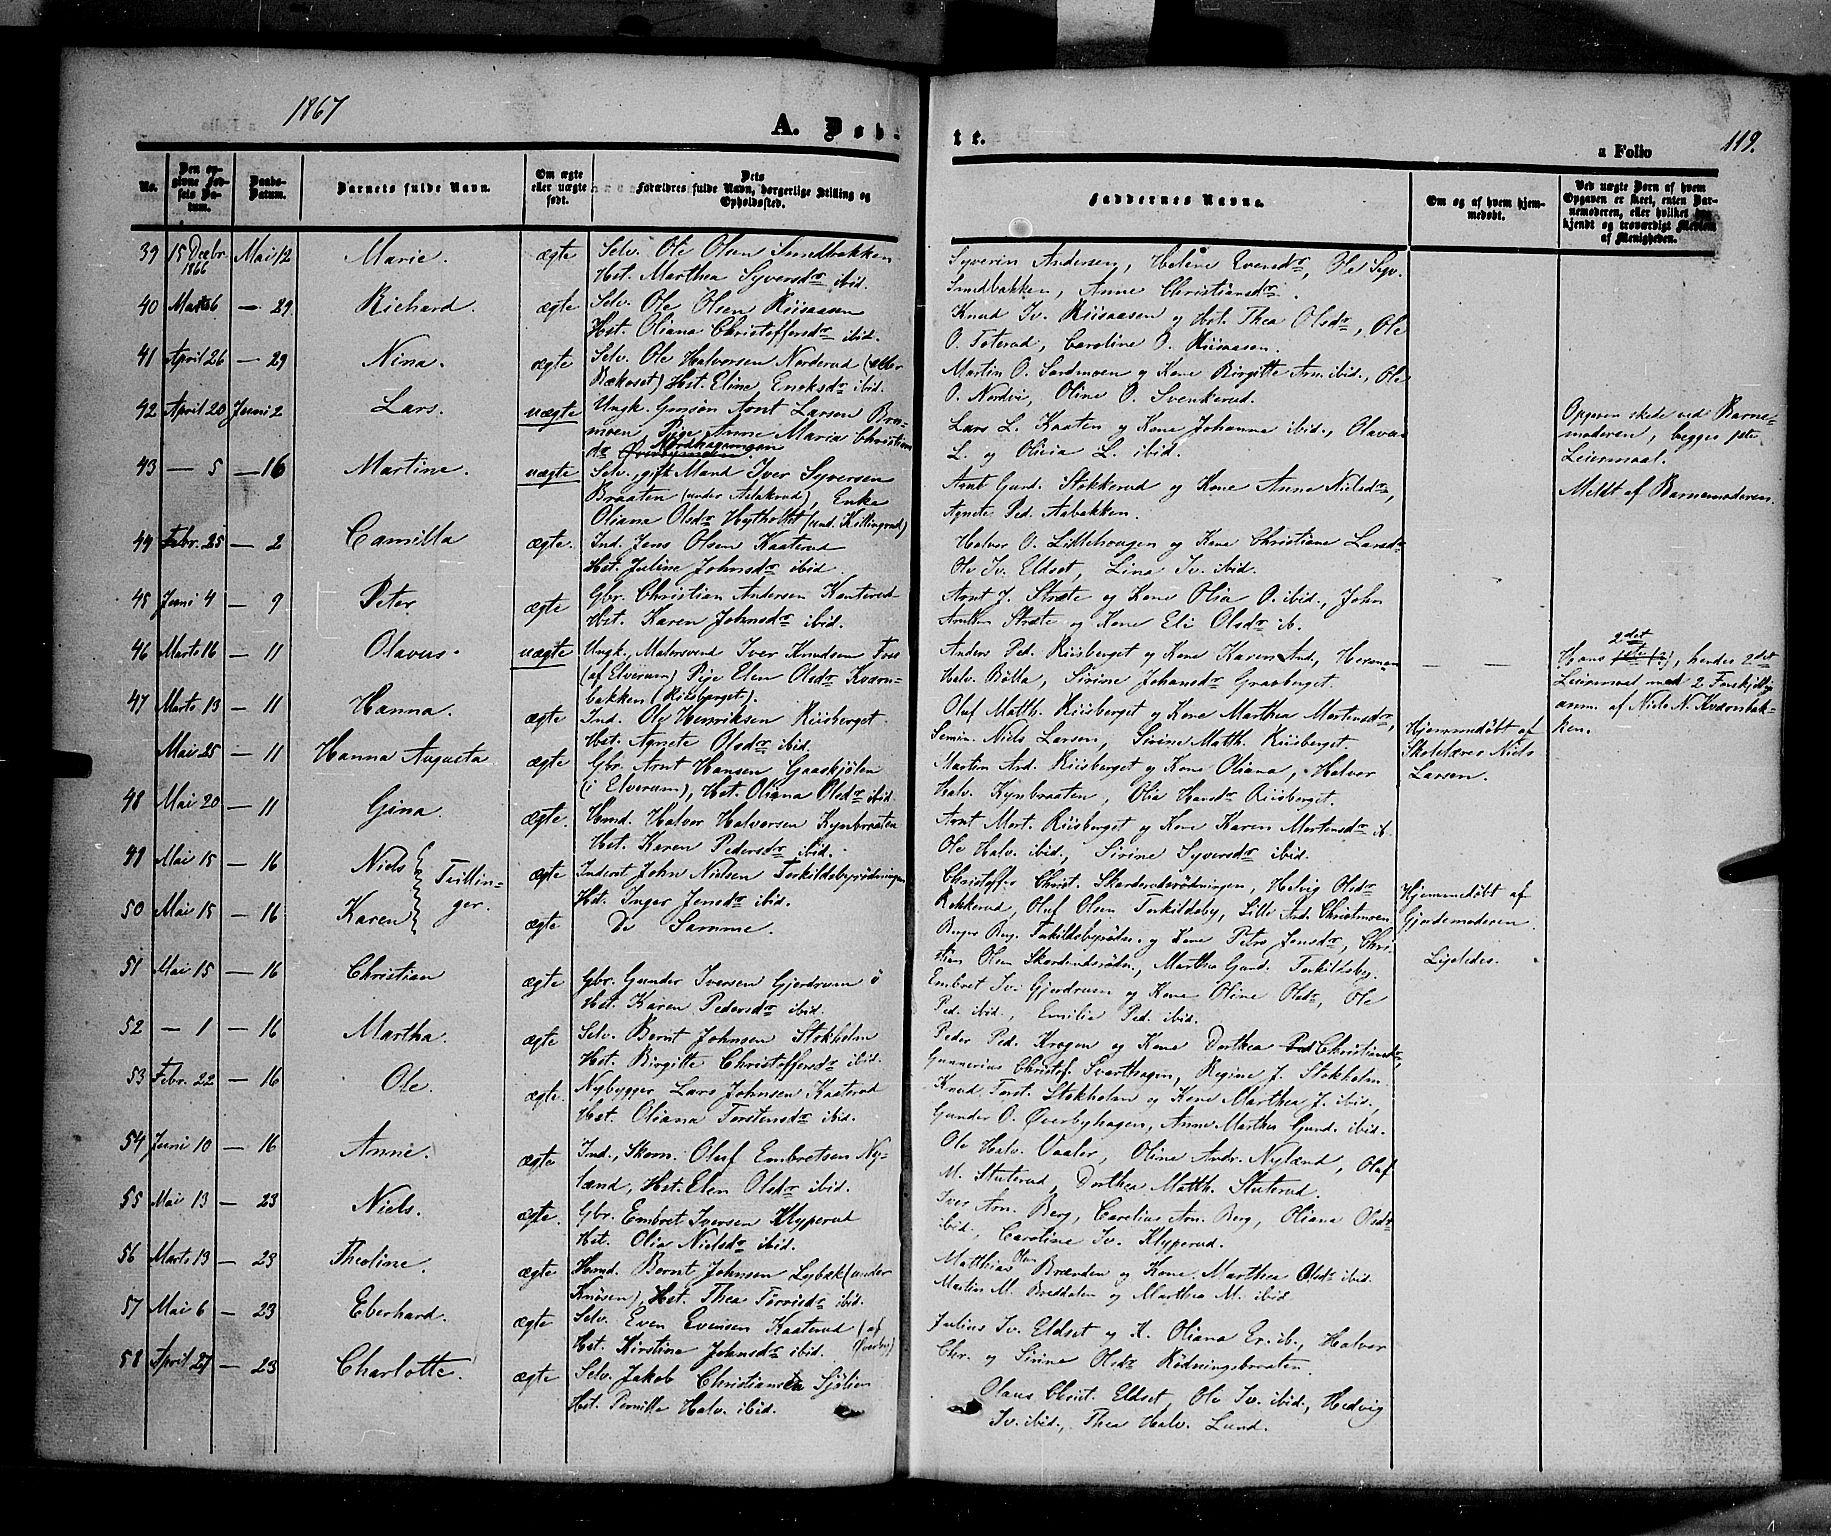 1867
A. Døb-
te.
a Folio
119.
No.
Den op-
givne Fød-
sels Da-
tum.
Daabs-
Datum.
Barnets fulde Navn.
Om ægte
eller uægte
født.
Dets
Forældres fulde Navn, borgerlige Stilling og
Opholdssted.
Faddernes Navne.
Om og af hvem hjem-
medøbt.
Ved uægte Børn af hvem
Opgaven er skeet, enten Bar-
nemoderen, eller hvilket be-
kjendt og troværdigt Medlem
af Menigheden.
39 15 Decbr. 1866 Mai 12 Marie. ægte Selv. Ole Olsen Sundbakken
Hst. Marthea Syversdr ibid.
Syverin Andersen, Helene Evensdr, Ole Syv.
Sundbakken, Anne Christiansdr.
40 Marts 6 — 29 Richard. ægte Selv. Ole Olsen Riisaasen
Hst. Oliana Christoffersdr ibid.
Knud Iv. Riisaasen og Hst. Thea Olsdr, Ole
O. Foterud, Caroline O. Riisaasen.
41 April 26 — 29 Nina. ægte Selv. Ole Halvorsen Norderud (
Bækoset) Hst. Eline Ericksdr ibid.
Martin O. Sandmoen og Kone Birgitte Arn. ibid., Ole
O. Nordvi, Oline O. Svenkerud.
42 April 20 Juni 2 Lars. uægte Ungk. Arnt Larsen Bra-
moen, Pige Anne Maria Christians
dr
Lars L. Kaaten og Kone Johanna ibid., Olavus
L. og Olivia L. ibid.
Opgaven skede ved Barne-
moderen, begges 1ste
Leiermaal.
43 — 5 — 16 Martine. uægte Selv. gift Mand Iver Syversen
Braaten (under Aslakrud), Enke
Oliana Olsdr Hythottet (und. Killingrud)
Arnt Gund. Stokkerud og Kone Anne Nielsdr,
Agnete Ped. Aabakken.
Meldt af Barnemoderen.
44 Febr. 25 — 2 Camilla ægte. Ind. Jens Olsen Kaaterud
Hst. Juline Johnsdr ibid.
Halvor O. Lillehougen og Kone Christiane Larsdr
Ole Iv. Eldset, Lina Iv. ibid.
45 Juni 4 — 9 Peter ægte Gbr. Christian Andersen Kanterud
Hst. Karen Johnsdr ibid.
Arnt J. Stræte og Kone Olia O. ibid., John
Stræte og Kone Eli Olsdr ib.
46 Marts 16 — 11 Olavus. uægte Ungk. Malersvend Iver Knudsen
(af Elverum) Pige Elen Olsdr Kværn-
bakken (Riisberget).
Anders Ped. Riisberget og Kone Karen And., Herman
Halv. Bolta, Sirine Johansdr Graaberget.
— —
2det
Hans 1ste (?), hendes 2det
Leiermaal med 2 Forskjellige
anm. af Niels N. Kværnbak-
ken.
47 Marts 13 — 11 Hanna. ægte Ind. Ole Henriksen Riisberget
Hst. Agnete Olsdr ibid.
Oluf Matth. Riisberget og Kone Marthea Mortensdr,
Semin. Niels Larsen, Sirine Matth. Riisberget.
Hjemmedøbt af
Skolelærer Niels
Larsen.
Mai 25 — 11 Hanna Augusta ægte Gbr. Arnt Hansen Gaaskjølen
(i Elverum), Hst. Oliana Olsdr ibid.
Martin And. Riisberget og Kone Oliana, Halvor
Halv. Kynbraaten, Olia Hansdr Riisberget.
48 Mai 20 — 11 Gina. ægte. Hmd. Halvor Halvorsen Kynbraaten
Hst. Karen Pedersdr ibid.
Arnt Mort. Riisberget og Kone Karen Mortensdr ib.
Ole Halv. ibid., Sirine Syversdr ibid.
49 Mai 15 — 16 Niels Tvillin- ægte Inderst John Nielsen Torkildsbyrødningen
Hst. Inger Jensdr ibid.
Christoffer Christ. Skarderudsrødningen, Helvig Olsdr
Rekkerud, Oluf Olsen Torkildsby, Lilli And. Christmoen
Hjemmedøbt af
Gjordemoderen
50 Mai 15 — 16 Karen ger. ægte De Samme.
Torkildsbyrødn. og Kone Petro Jensdr, Chri-
stian Olsen Skarderudsrødn., Marthea Gund. Torkildsby.
Ligeledes.
51 Mai 15 — 16 Christian ægte Gbr. Gunder Iversen Gjerdrum ö
Hst. Karen Pedersdr ibid.
Embret Iv. Gjerdrum og Kone Oline Olsdr, Ole
Ped. ibid., Emilia Ped. ibid.
52 — 1 — 16 Martha. ægte Selv. Bernt Johnsen Stokholm
Hst. Birgitte Christoffersdr ibid.
Peder Ped. Krogen og Kone Dorthea Christiansdr,
Gunnerius Christof. Svarthagen, Regine J. Stokholm.
53 Febr. 22 — 16 Ole ægte. Nybygger Lars Johnsen Kaaterud
Hst. Oliana Torstensdr ibid.
Knud Torst. Stokholm og Kone Marthea J. ibid.,
Gunder O. Øverbyhagen, Anne Marthea Gund. ibid.
54 Juni 10 — 16 Anne. ægte Ind., Skom. Oluf Embretsen Ny-
lænd, Hst. Elen Olsdr ibid.
Ole Halv. Vaaler, Oline Andr. Nylænd, Oluf
M. Stuterud, Dorthea Matth. Stuterud.
55 Mai 13 — 23 Niels. ægte. Gbr. Embret Iversen Klyperud
Hst. Olia Nielsdr ibid.
Iver Arn. Berg, Carelius Arn. Berg, Oliana Olsdr
ibid., Caroline Iv. Klyperud.
56 Marts 13 — 23 Theoline. ægte Hmd. Bernt Johnsen Lybæk (under
Knosen), Hst. Thea Torrisdr ibid.
Matthias Olsen Brænden og Kone Marthea Olsdr ibid.
Martin M. Breddalen og Marthea M. ibid
57 Mai 6 — 23 Eberhard. ægte Selv. Even Evensen Kaaterud (af
Hst. Kirstine Johnsdr ibid. Øverby)
Julius Iv. Eldset og K. Oliana Er. ib., Halvor
Chr. og Sirine Olsdr Rødningsbraaten
58 April 27 — 23 Charlotte. ægte Selv. Jakob Christiansen Sjølien
Hst. Pernille Halv. ibid.
Olaus Christ. Eldset, Ole Iv. ibid., Hedvig
Iv. ibid., Thea Halv. Lund.